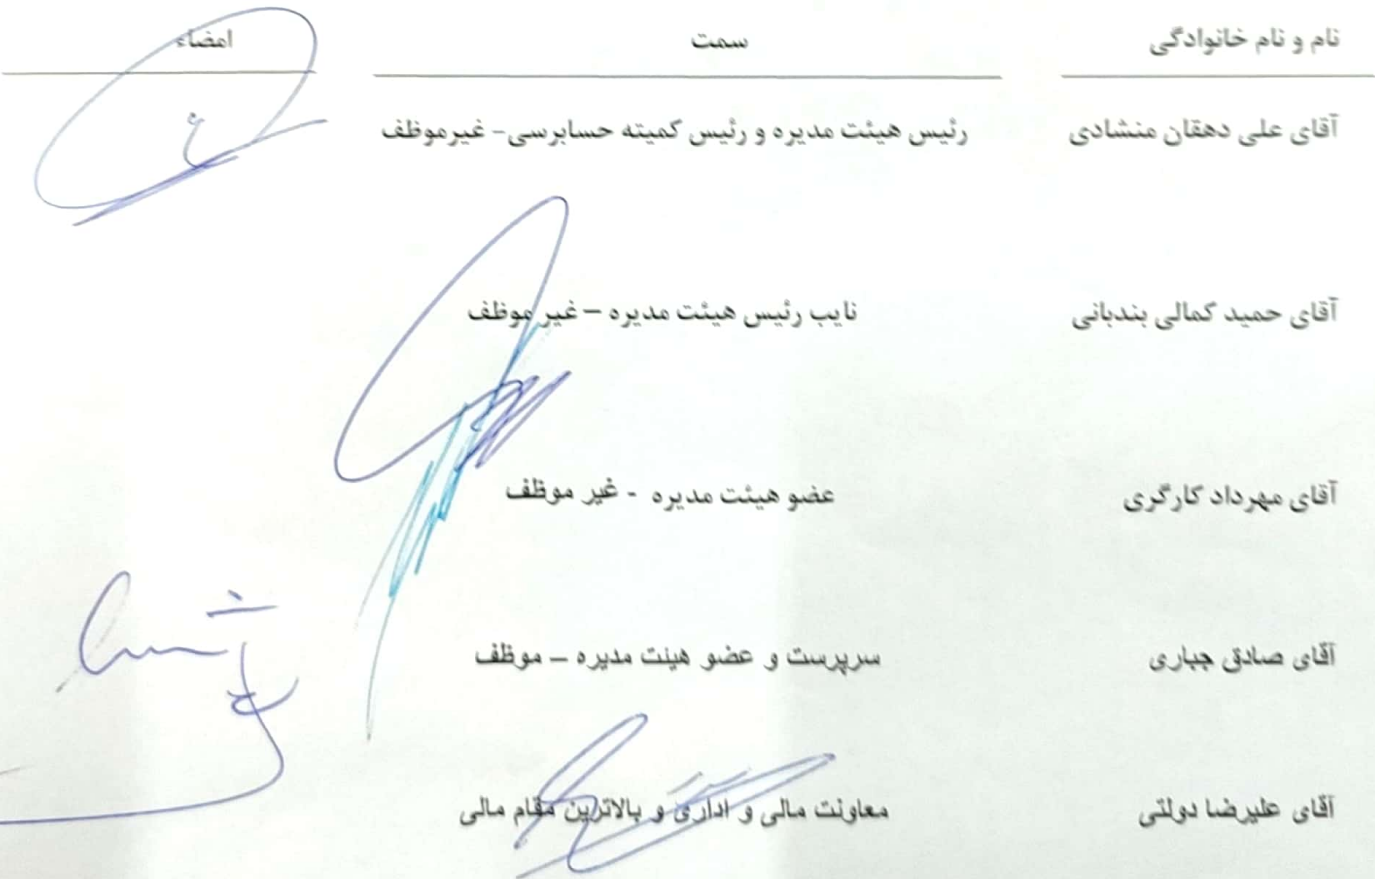 نام و نام خانوادگی سمت امضاء
آقای علی دهقان منشادی رئیس هیئت مدیره و رئیس کمیته حسابرسی- غیرموظف
آقای حمید کمالی بندبانی نایب رئیس هیئت مدیره – غیر موظف
آقای مهرداد کارگری عضو هیئت مدیره - غیر موظف
آقای صادق جباری سرپرست و عضو هیئت مدیره – موظف
آقای علیرضا دولتی معاونت مالی و اداری و بالاترین مقام مالی